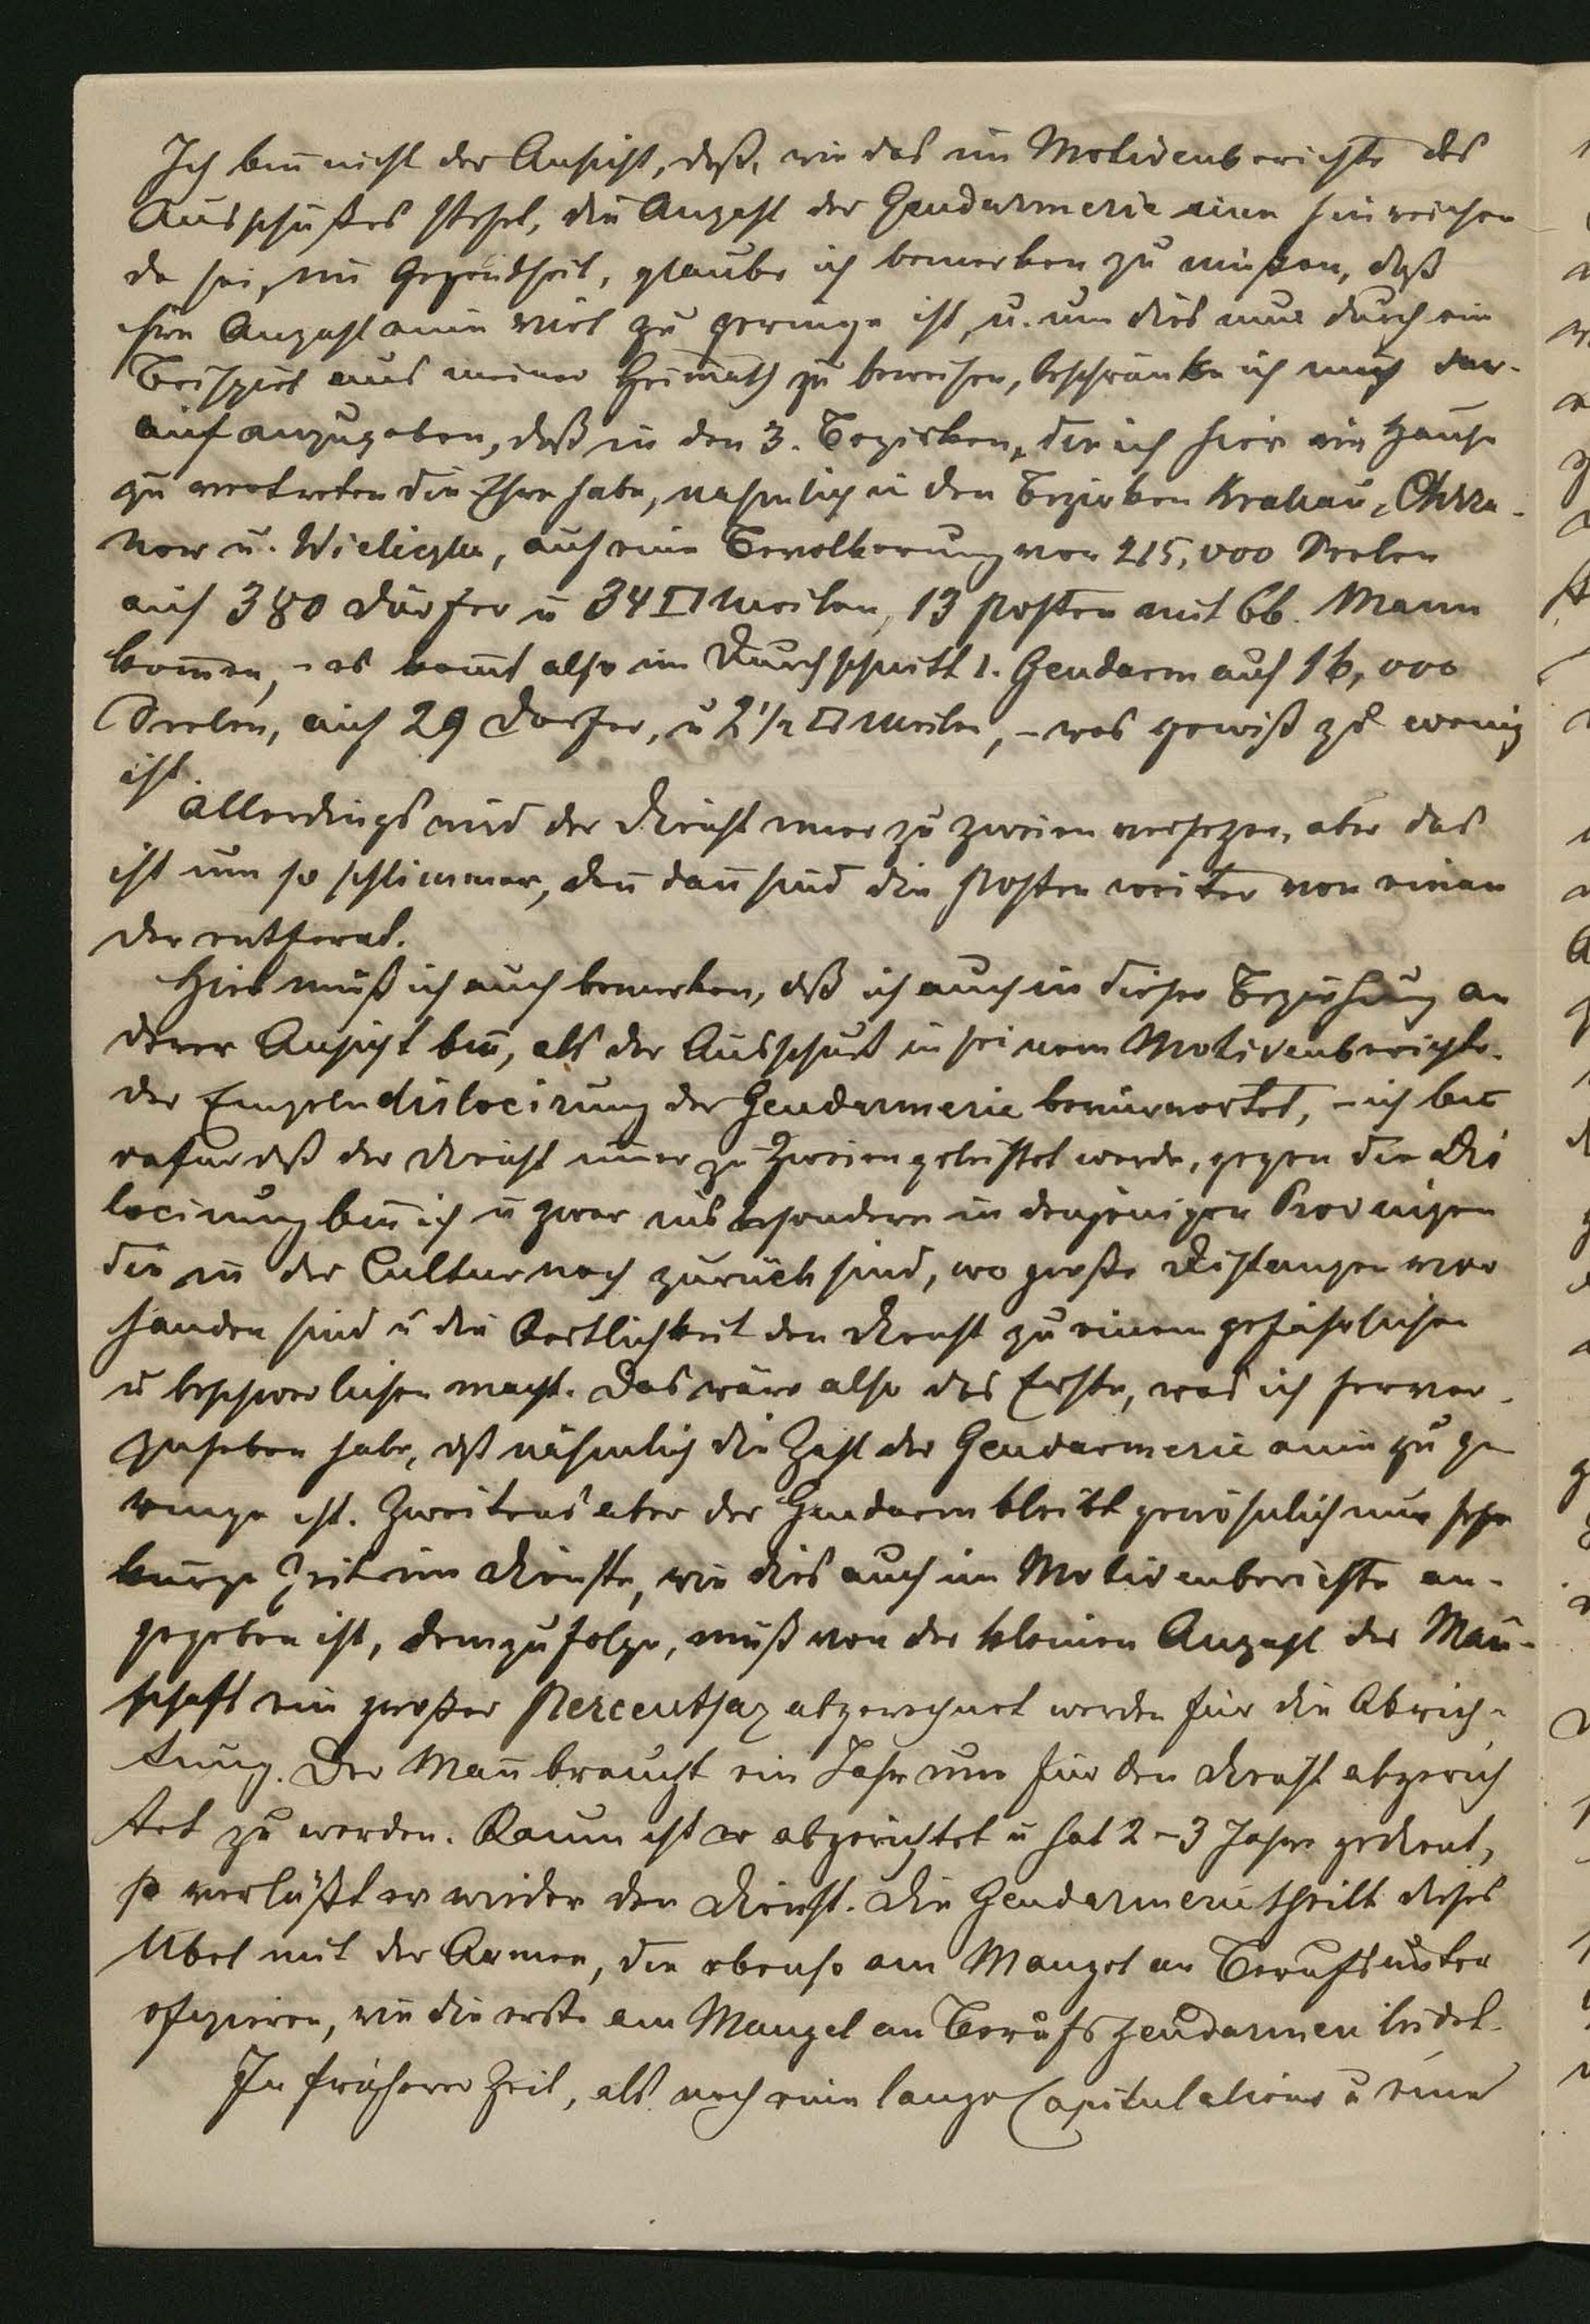 Ich bin̄ nicht der Ansicht, daß, wie das im Motivenberichte des
Ausschußes steht, die Anzahl der Gendarmerie eine hinreichen
de sei, im Gegentheil, glaube ich bemerken zu müßen, daß
ihre Anzahl eine viel zu geringe ist, u. um dies nur durch ein
Beispiel aus meiner Heimath zu beweisen, beschränke ich mich dar-
auf anzugeben, daß in den 3. Bezirken, die ich hier im Hause
zu vertreten die Ehre habe, nahmlich in den Bezirken Krakau, Chrza-
now u. Wieliczka, auf eine Bevolkerung von 215,000 Seelen
auf 380 Dörfer u 34 □ Meilen, 13 Posten mit 66. Mann
kom̄en, – es kom̄t also im Durchschnitt 1. Gendarm auf 16,000
Seelen, auf 29 Dorfer, u 2 1/2 □ Meilen, – was gewiß zu wenig
ist.
Allerdings wird der Dienst immer zu zweien versehen, aber das
ist um so schlimmer, den̄ dan̄ sind die Posten weiter von einan
der entfernt.
Hier muß ich auch bemerken, daß ich auch in dieser Beziehung an
derer Ansicht bin̄, als der Ausschuß in seinem Motivenberichte.
der Einzelndislocirung der Gendarmerie bevürwortet, – ich bin
dafür daß der Dienst im̄er zu Zweien geleistet werde, gegen die Dis
locirung bin̄ ich u zwar insbesondere in denjenigen Provinzen
die in der Cultur noch zurück sind, wo große Distanzen vor
handen sind u die Oertlichkeit den Dienst zu einem gefährlichen
u beschwerlichen macht. Das wäre also das Erste, was ich hervor-
zuheben habe, daß nähmlich die Zahl der Gendarmerie eine zu ge
ringe ist. Zweitens aber der Gendarm bleibt gewöhnlich nur sehr
kurze Zeit im Dienste, wie dies auch im Motivenberichte an-
gegeben ist, demzufolge, muß von der kleinen Anzahl der Man̄-
schaft ein großer Percentsaz abgerechnet werden für die Abrich-
tung. Der Man̄ braucht ein Jahr um für den Dienst abgerich
tet zu werden. Kaum ist er abgerichtet u hat 2–3 Jahre gedient,
so verläßt er wieder den Dienst. Die Gendarmerie theilt dieses
Übel mit der Armee, die ebenso am Mangel an Berufsunter
ofizieren, wie die erste am Mangel an Berufsgendarmen leidet.
In früherer Zeit, als noch eine lange Capitulations u eine